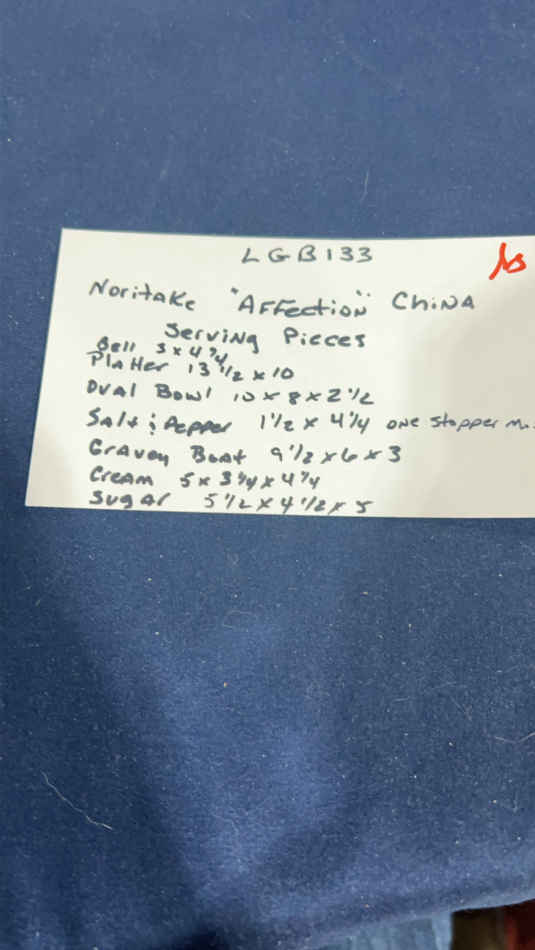 LGB133
Noritake "Affection" China
Serving Pieces
Bell 3 x 4 3/4
Platter 13 1/2 x 10
Oval Bowl 10 x 8 x 2 1/2
Salt & Pepper 1 1/2 x 4 1/4 one stopper
Gravey Boat 9 1/2 x 6 x 3
Cream 5 x 3 3/4 x 4 3/4
Sugar 5 1/2 x 4 1/2 x 5